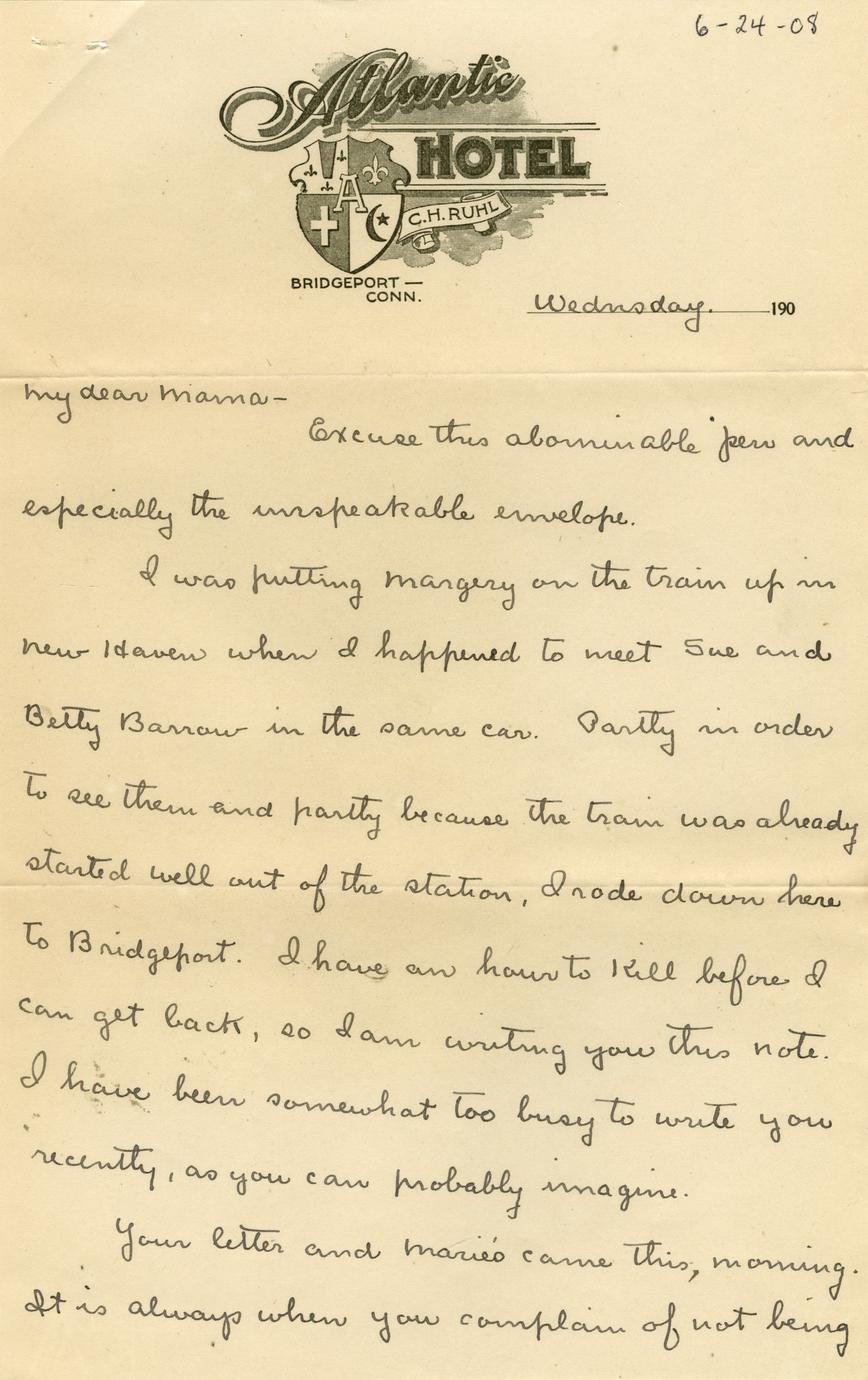 6-24-08
Atlantic
HOTEL
A
C.H. RUHL
BRIDGEPORT —
CONN.
Wednsday. 190
My dear Mama-
Excuse this abominable pen and
especially the unspeakable envelope.
I was putting Margery on the train up in
New Haven when I happened to meet Sue and
Betty Barrow in the same car. Partly in order
to see them and partly because the train was already
started well out of the station, I rode down here
to Bridgeport. I have an hour to kill before I
can get back, so I am writing you this note.
I have been somewhat too busy to write you
recently, as you can probably imagine.
Your letter and Marie's came this, morning.
It is always when you complain of not being